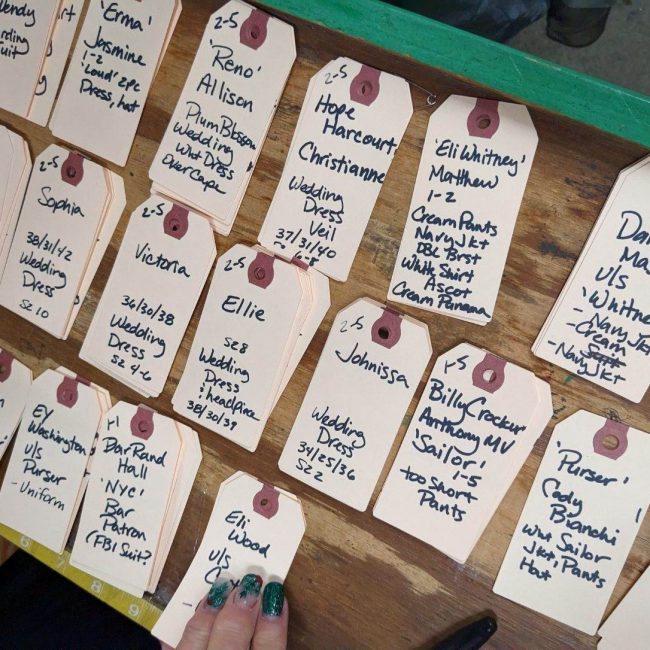 'Erma'
Jasmine
1-2
'Loud' 2pc
Dress, hat
2-5
'Reno'
Allison
Plum Blossom
Wedding
Wht Dress
Over Cape
2-5
Hope
Harcourt
Christianne
Wedding
Dress
Veil
37/31/40
'Eli Whitney'
Matthew
1-2
Cream Pants
Navy Jkt
Dbl Brst
White Shirt
Ascot
Cream Panama
u/s
'Whitney
- Navy Jkt
- Cream
- Navy Jkt
2-5
Sophia
38/31/42
Wedding
Dress
SZ 10
2-5
Victoria
36/30/38
Wedding
Dress
SZ 4-6
2-5
Ellie
SZ 8
Wedding
Dress
& headpiece
38/30/39
2-5
Johnissa
Wedding
Dress
34/25/36
SZ 2
1-5
Billy Crocker
Anthony MV
'Sailor'
1-5
too short
Pants
'Purser'
Cody
Bianchi
Wht Sailor
Jkt, Pants
Hat
EY
Washington
u/s
Purser
- Uniform
DarRand
Hall
'NYC'
Bar
Patron
(FBI Suit?
Eli
Wood
u/s
6
7
8
9